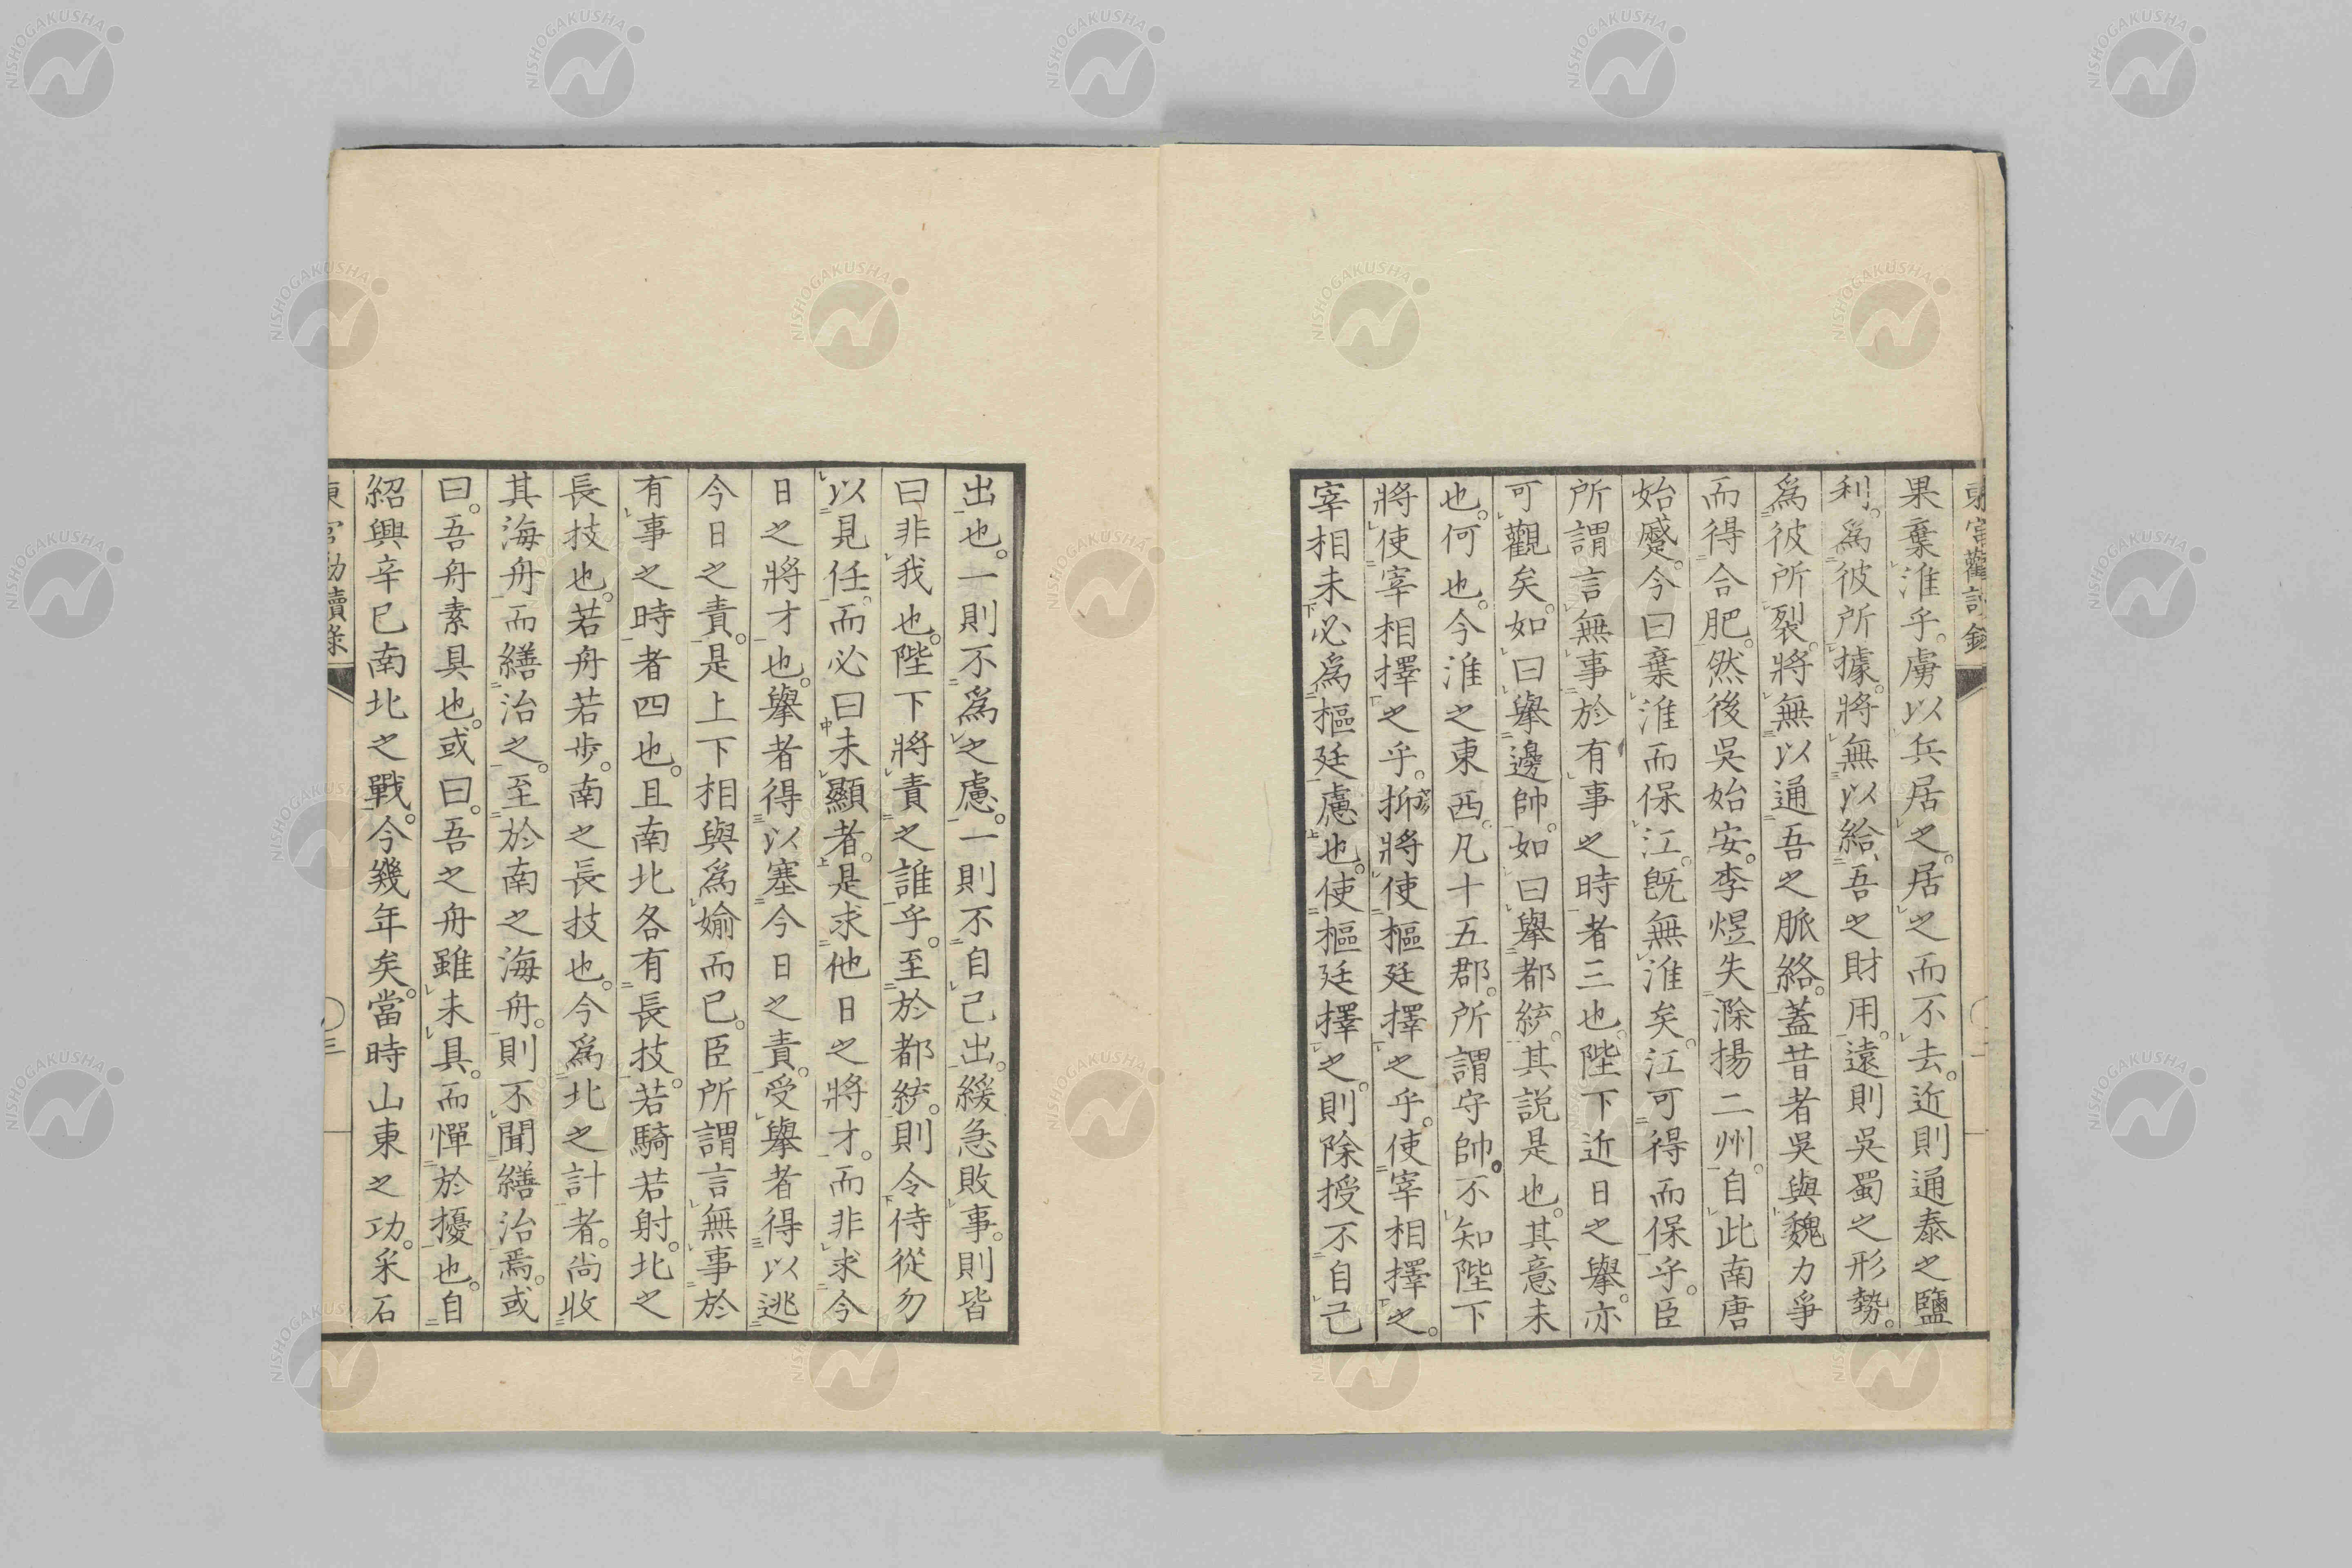 果棄淮乎。虜以兵居之。居之而不去。近則通泰之鹽
利。爲彼所據。將無以給吾之財用。遠則吳蜀之形勢。
爲彼所裂。將無以通吾之脈絡。蓋昔者吳與魏力爭
而得合肥。然後吳始安。李煜失滁揚二州。自此南唐
始蹙。今曰棄淮而保江。旣無淮矣。江可得而保乎。臣
所謂言無事於有事之時者三也。陛下近日之擧。亦
可觀矣。如曰擧邊帥。如曰擧都統。其説是也。其意未
也。何也。今淮之東西。凡十五郡。所謂守帥。不知陛下
將使宰相擇之乎。抑將使樞廷擇之乎。使宰相擇之。
宰相未必爲樞廷慮也。使樞廷擇之。則除授不自己
出也。一則不爲之慮。一則不自己出。緩急敗事。則皆
曰非我也。陛下將責之誰乎。至於都統。則令侍從勿
以見任。而必曰未顯者。是求他日之將才。而非求今
日之將才也。擧者得以塞今日之責。受擧者得以逃
今日之責。是上下相與爲婾而已。臣所謂言無事於
有事之時者四也。且南北各有長技。若騎若射。北之
長技也。若舟若步。南之長技也。今爲北之計者。尚收
其海舟而繕治之。至於南之海舟。則不聞繕治焉。或
曰。吾舟素具也。或曰。吾之舟雖未具。而憚於擾也。自
紹興辛巳南北之戰。今幾年矣。當時山東之功。采石